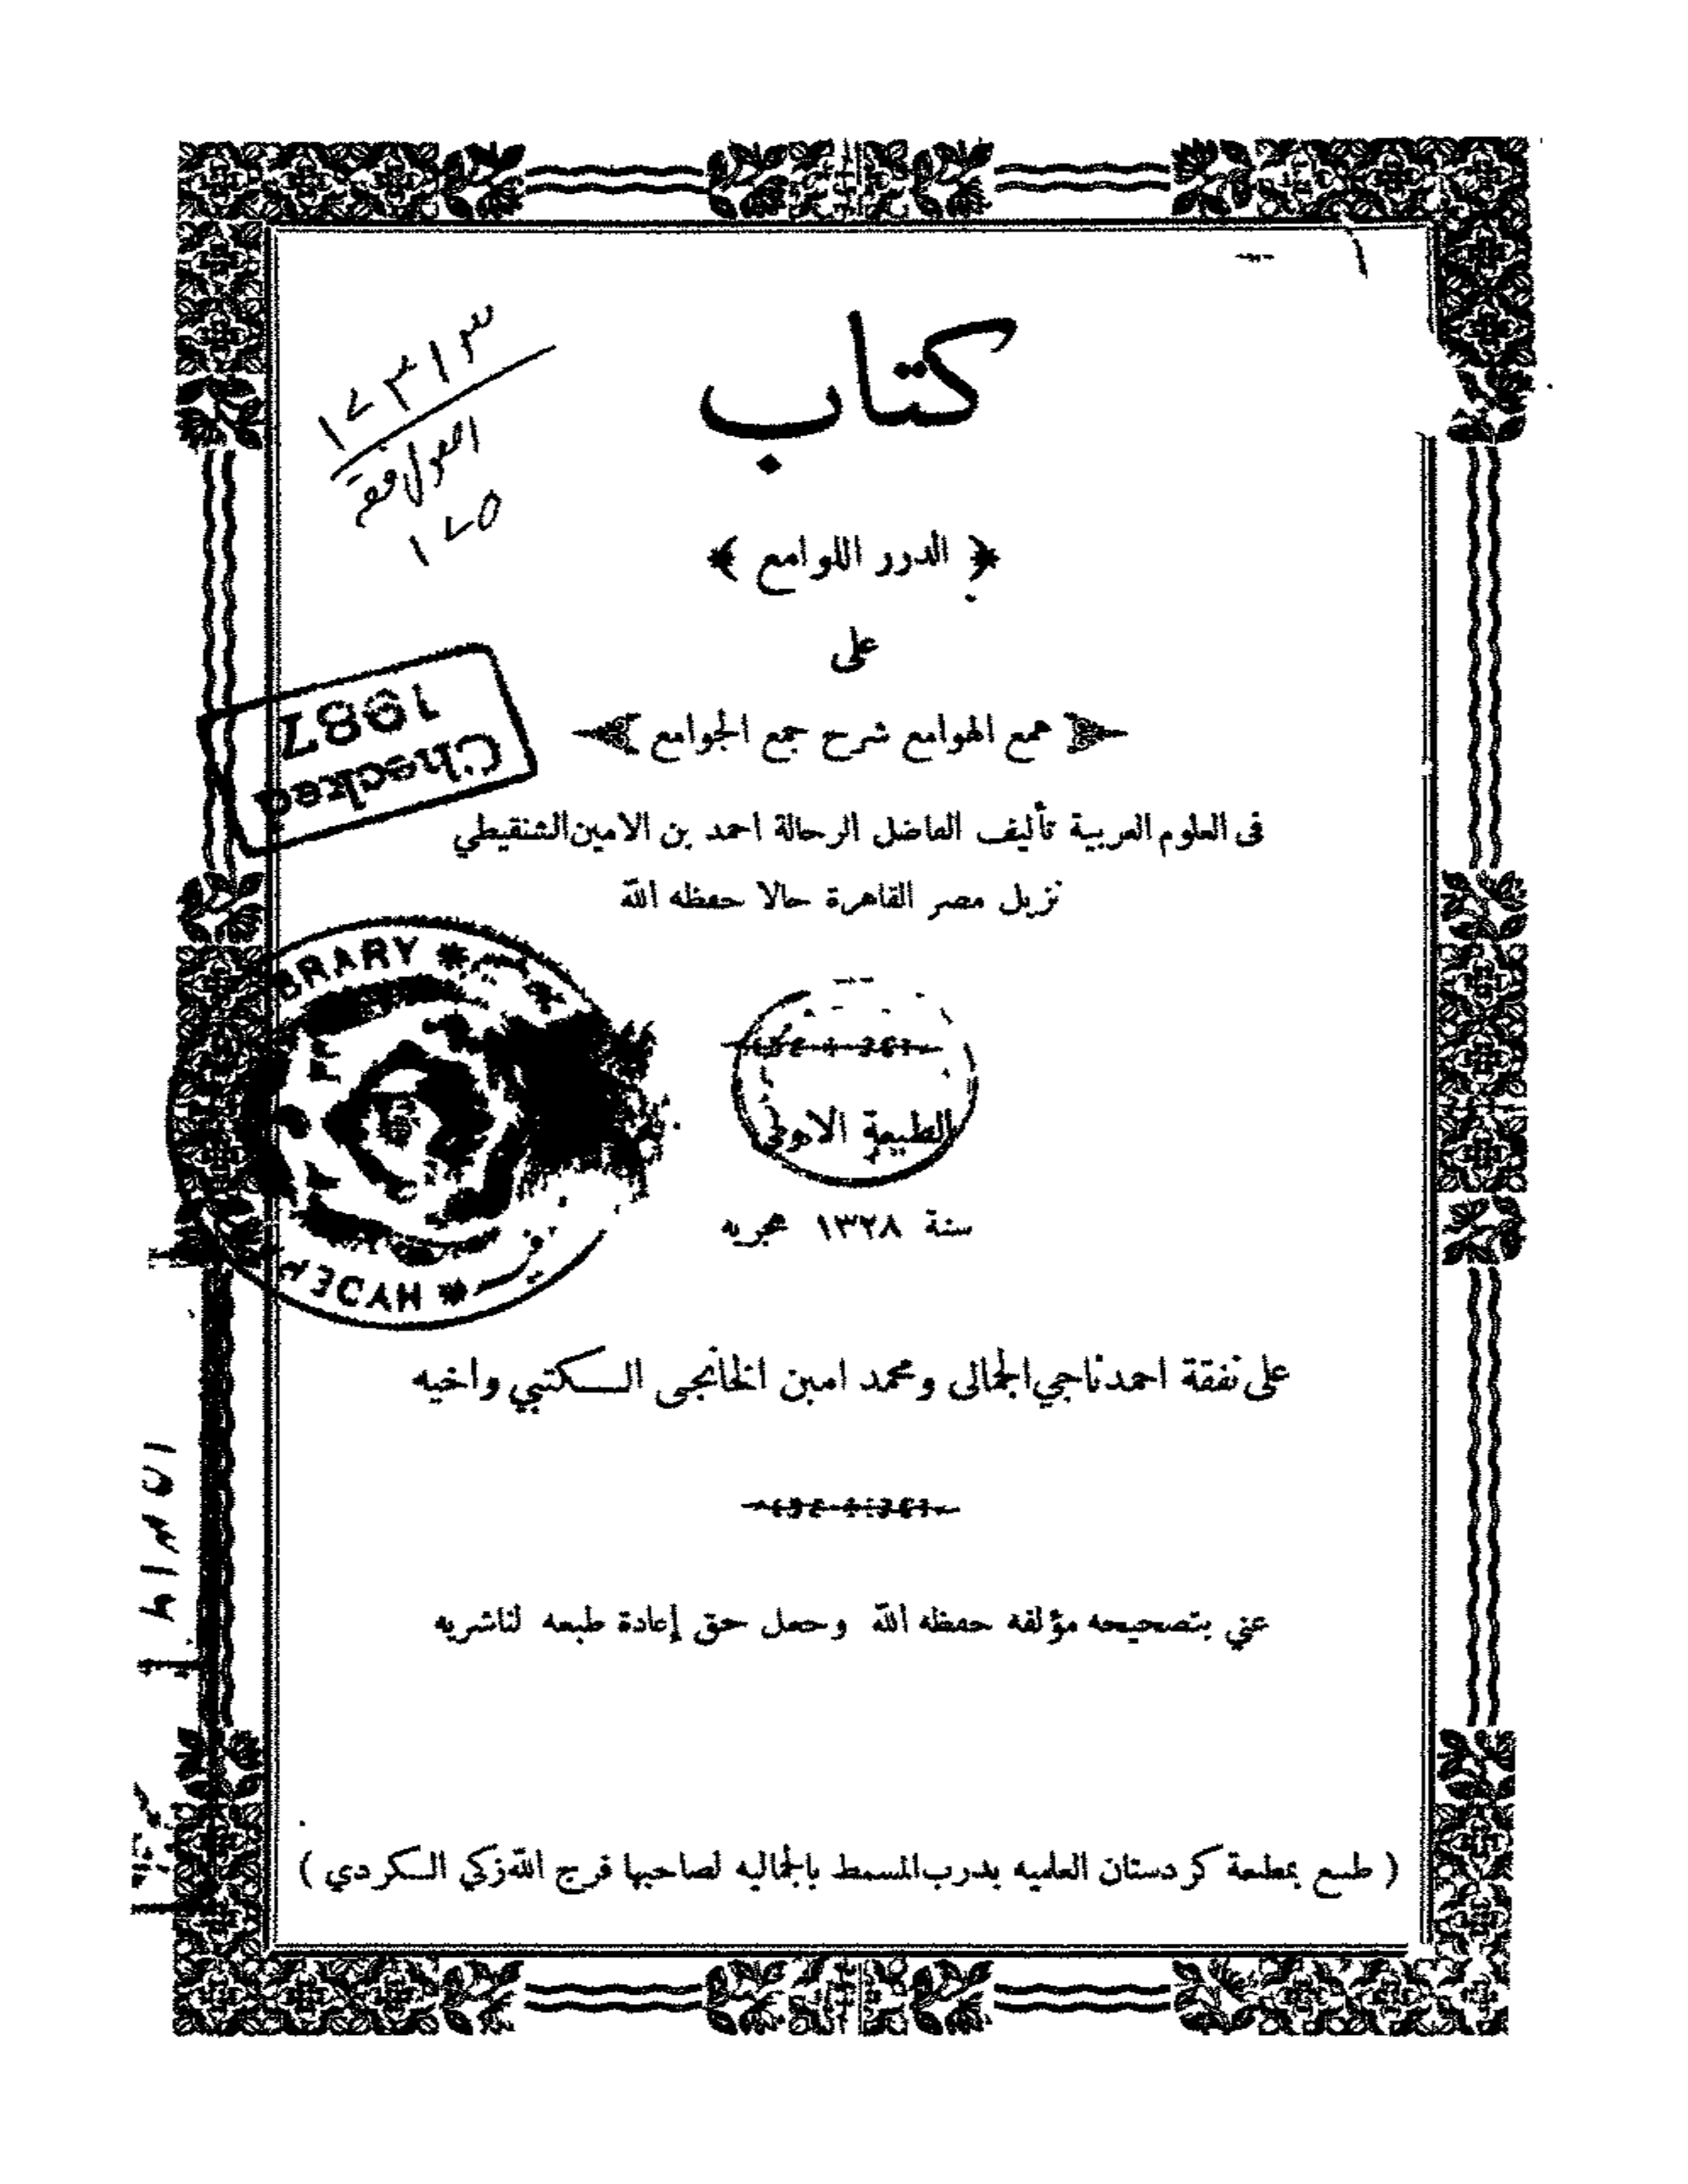 كتاب
﴿ الدرر اللوامع ﴾
على
همع الهوامع شرح جمع الجوامع
فى العلوم العربية تأليف الفاضل الرحالة احمد بن الامين الشنقيطي
نزيل مصر القاهرة حالا حفظه الله
الطبعة الاولى
سنة ١٣٢٨ هجريه
على نفقة احمد ناجي الجمالى ومحمد امين الخانجى الكتبي واخيه
عني بتصحيحه مؤلفه حفظه الله وجعل حق إعادة طبعه لناشريه
( طبع بمطبعة كردستان العلميه بدرب المسمط بالجماليه لصاحبها فرج الله زكي الكردي )
١٧٣١٣
اصول فقه
١٧٥
Checked
1987